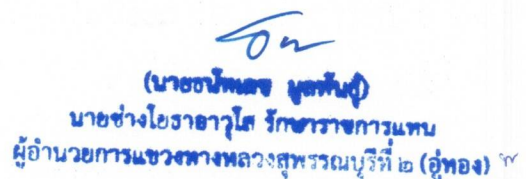 (นายธนัทเดช มูลพันธุ์)
นายช่างโยธาอาวุโส รักษาราชการแทน
ผู้อำนวยการแขวงทางหลวงสุพรรณบุรีที่ ๒ (อู่ทอง)